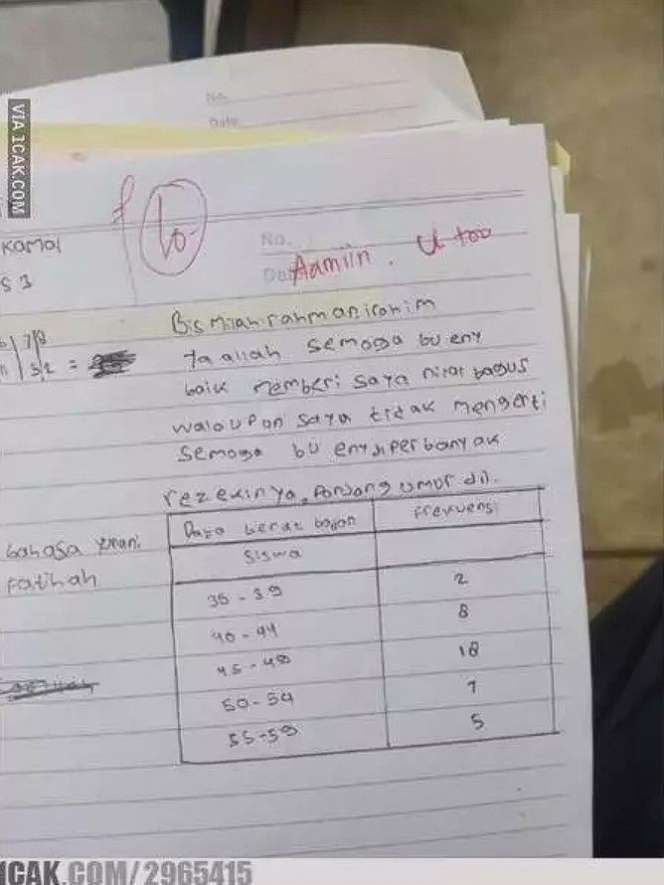 VIA 1CAK.COM
No.
Date
Kamal
S 3
60
No.
Aamiin. U too
Bismilahirahmanirohim
Ya allah semoga bu eny
baik memberi saya nilai bagus
walaupun saya tidak mengerti
semoga bu eny diperbanyak
rezekinya, panjang umur dll.
bahasa
Fatihah
Data berat badan
siswa
Frekuensi
35 - 39
2
40 - 44
8
45 - 49
18
50 - 54
7
55 - 59
5
1CAK.COM/2965415